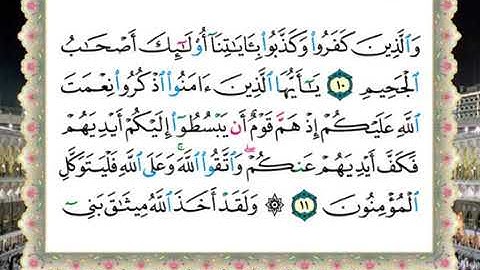 وَٱلَّذِينَ كَفَرُوا۟ وَكَذَّبُوا۟ بِـَٔايَـٰتِنَآ أُو۟لَـٰٓئِكَ أَصْحَـٰبُ
ٱلْجَحِيمِ ١٠ يَـٰٓأَيُّهَا ٱلَّذِينَ ءَامَنُوا۟ ٱذْكُرُوا۟ نِعْمَتَ
ٱللَّهِ عَلَيْكُمْ إِذْ هَمَّ قَوْمٌ أَن يَبْسُطُوٓا۟ إِلَيْكُمْ أَيْدِيَهُمْ
فَكَفَّ أَيْدِيَهُمْ عَنكُمْ ۖ وَٱتَّقُوا۟ ٱللَّهَ ۚ وَعَلَى ٱللَّهِ فَلْيَتَوَكَّلِ
ٱلْمُؤْمِنُونَ ١١ ۞ وَلَقَدْ أَخَذَ ٱللَّهُ مِيثَـٰقَ بَنِىٓ